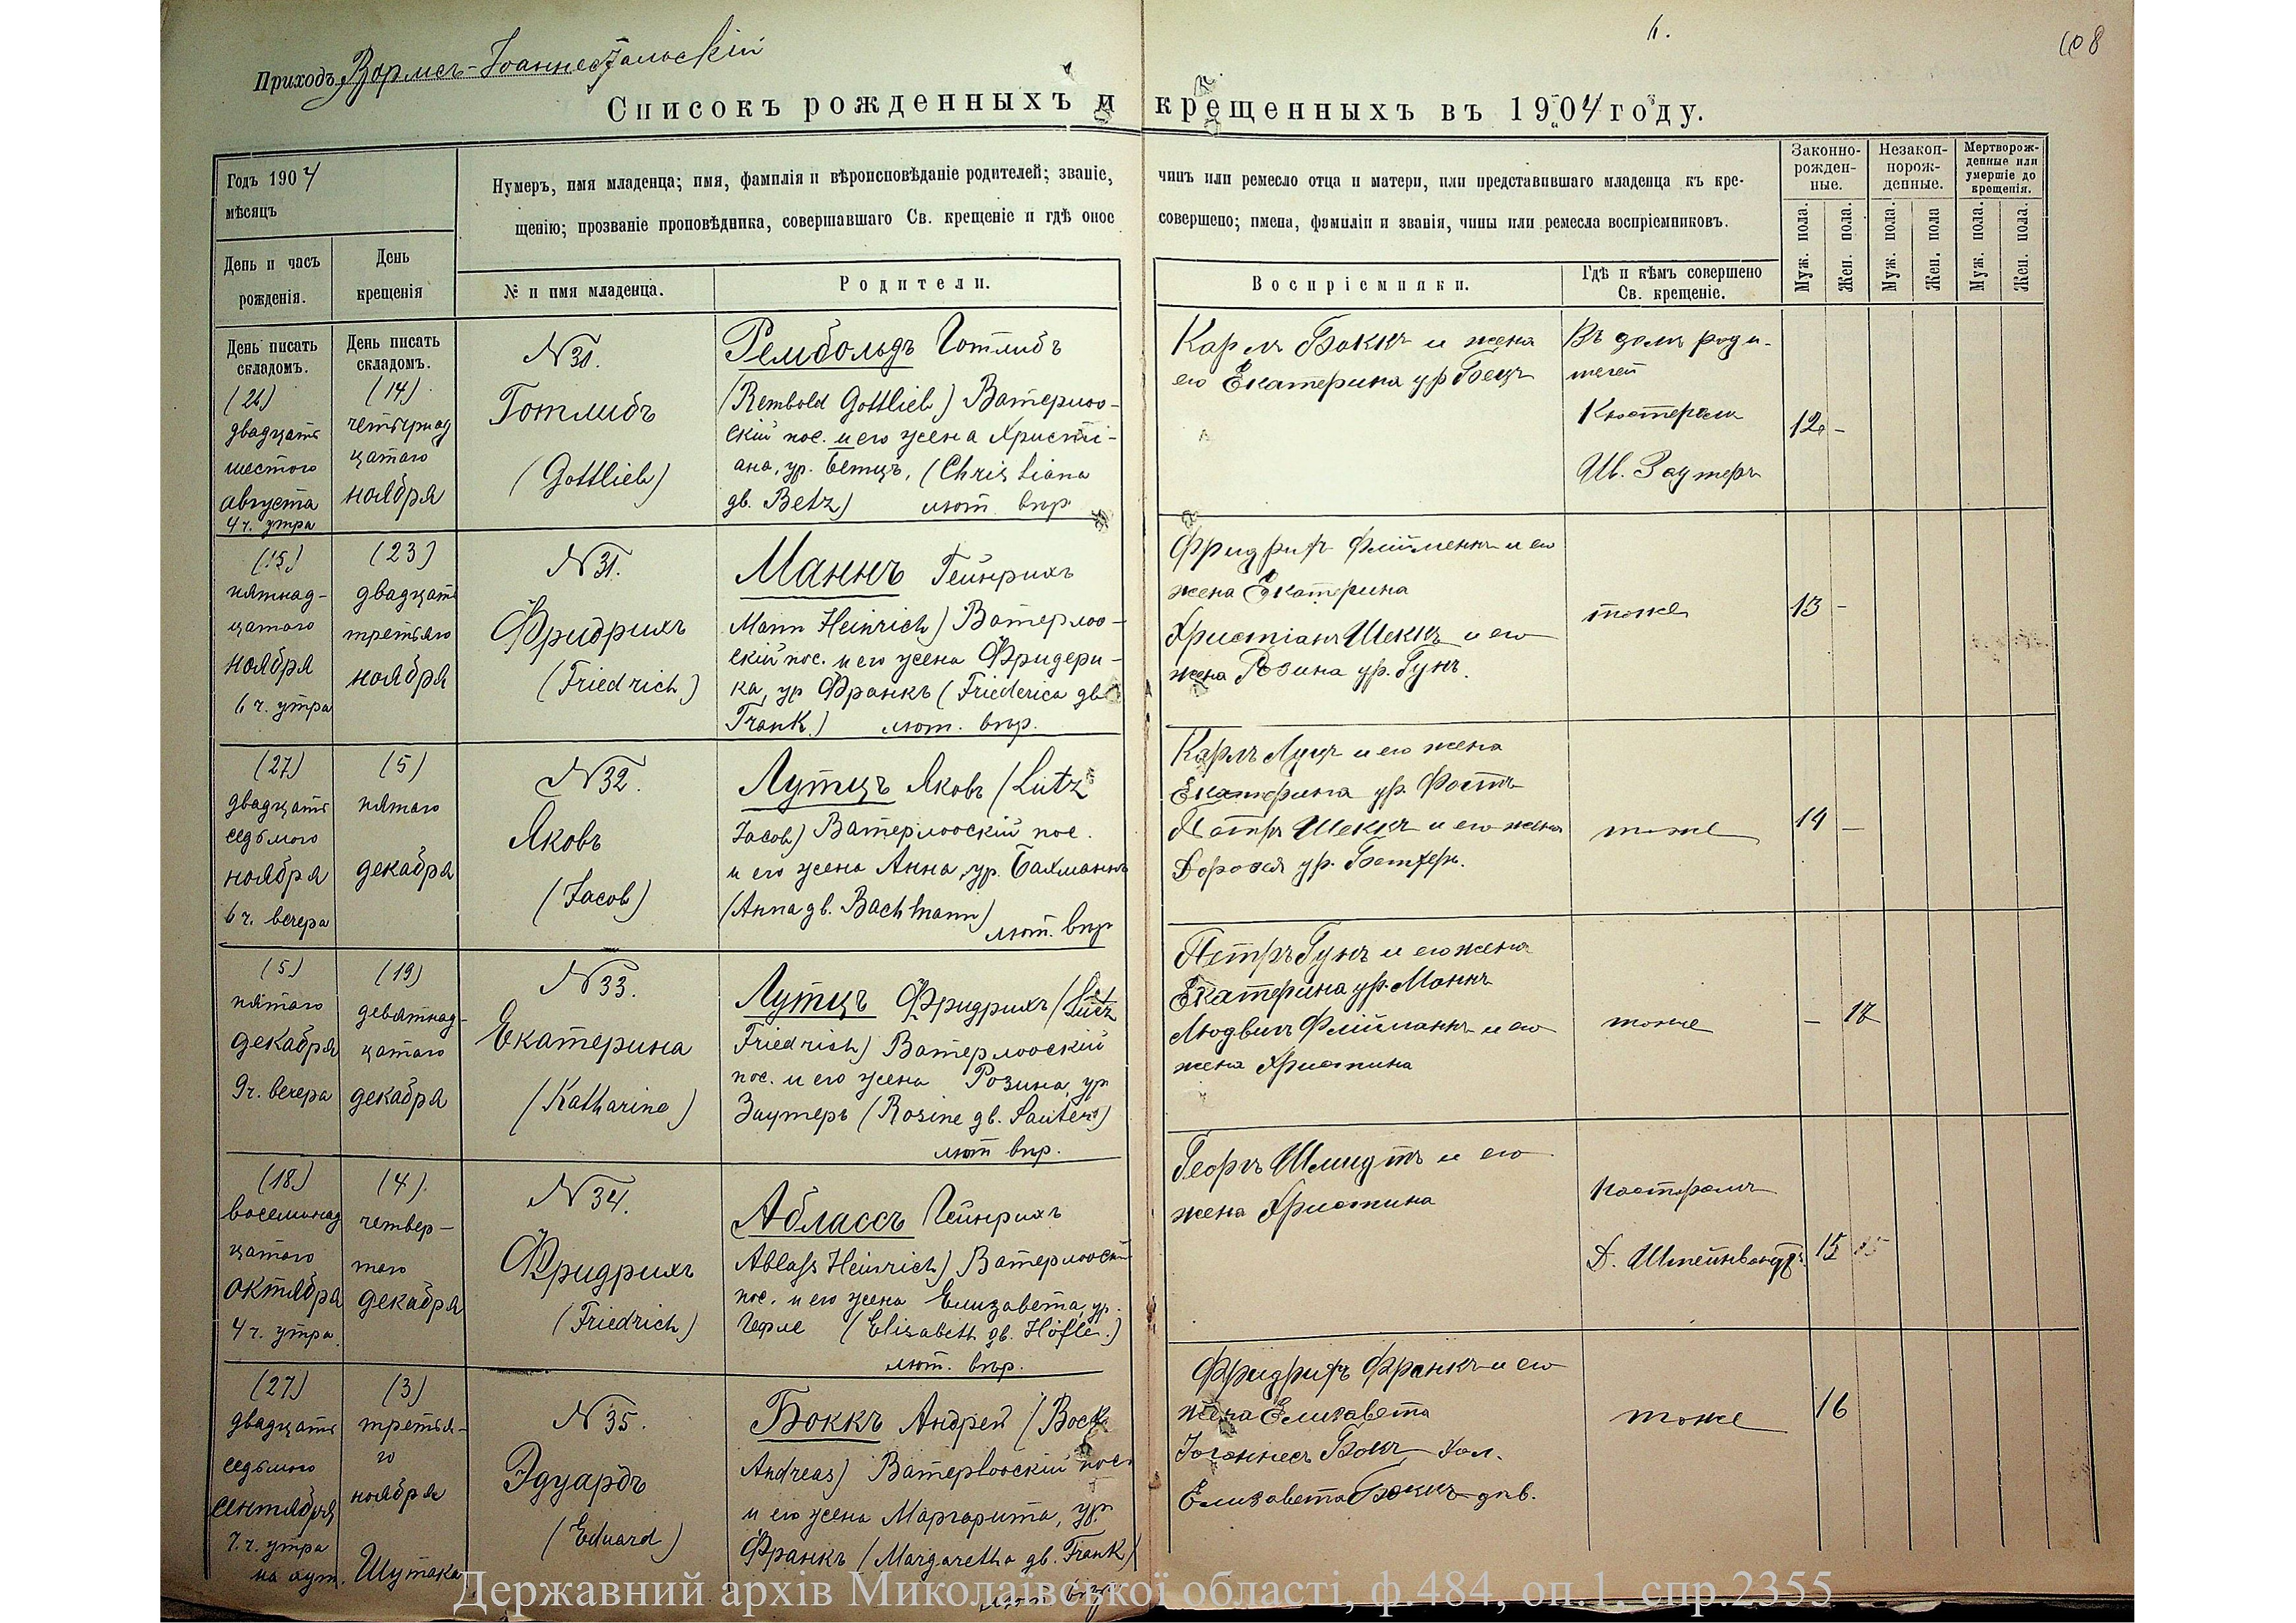 Приходъ Вормсъ-Іоаннестальскій
6.
108
Списокъ рожденныхъ и крещенныхъ въ 1904 году.
Годъ 1904
мѣсяцъ
День и часъ
рожденія.
День
крещенія
Нумеръ, имя младенца; имя, фамилія и вѣроисповѣданіе родителей; званіе,
щенію; прозваніе проповѣдника, совершавшаго Св. крещеніе и гдѣ оное
чинъ или ремесло отца и матери, или представившаго младенца къ кре-
совершено; имена, фамиліи и званія, чины или ремесла воспріемниковъ.
№ и имя младенца.
Родители.
Воспріемники.
Гдѣ и кѣмъ совершено
Св. крещеніе.
Законно-
рожден-
ные.
Незакон-
норож-
денные.
Мертворож-
денные или
умершіе до
крещенія.
Муж. пола.
Жен. пола.
Муж. пола.
Жен. пола
Муж. пола.
Жен. пола.
День писать
складомъ.
(26)
двадцать
шестого
августа
4 ч. утра
День писать
складомъ.
(14)
четырнад
цатаго
ноября
N 30.
Готлибъ
(Gottlieb)
Рембольдъ Готлибъ
(Rembold Gottlieb) Ватерлоо-
скій пос. и его жена Христі-
ана, ур. Бетцъ, (Christiana
дв. Betz) лют. вѣр
Карлъ Боккъ и жена
его Екатерина ур Бецъ
Въ домѣ роди-
телей
Кюстеромъ
Ив. Заутеръ
12 -
(15)
пятнад-
цатаго
ноября
6 ч. утра
(23)
двадцать
третьяго
ноября
N 31.
Фридрихъ
(Friedrich)
Маннъ Гейнрихъ
Mann Heinrich) Ватерлоо-
скій пос. и его жена Фридери-
ка, ур Франкъ (Friederica дв
Frank) лют. вѣр.
Фридрихъ Флейменъ и его
жена Екатерина
Христіанъ Шеккъ и его
жена Розина ур. Гунъ.
тоже
13 -
(27)
двадцать
седьмого
ноября
6 ч. вечера
(5)
пятаго
декабря
N 32.
Яковъ
(Jacob)
Лутцъ Яковъ (Lutz
Jacob) Ватерлооскій пос.
и его жена Анна, ур. Бахманнъ
(Anna дв. Bachmann)
лют. вѣр
Карлъ Луцъ и его жена
Екатерина ур. Фостъ
Петръ Шеккъ и его жена
Доротея ур.
тоже
14 -
(5)
пятаго
декабря
9 ч. вечера
(19)
девятнад-
цатаго
декабря
N 33.
Екатерина
(Katharina)
Лутцъ Фридрихъ (Lutz
Friedrich) Ватерлооскій
пос. и его жена Розина, ур
Заутеръ (Rosine дв. Sauter)
лют вѣр.
Петръ Гунъ и его жена
Екатерина ур. Маннъ
Людвигъ Флейманъ и его
жена Христина
тоже
-
(18)
восемнад
цатаго
октября
4 ч. утра
(4)
четвер-
таго
декабря
N 34.
Фридрихъ
(Friedrich)
Аблассъ Гейнрихъ
Ablass Heinrich) Ватерлооскій
пос. и его жена Елизавета, ур.
Гефле (Elisabeth дв. Höfle.)
лют. вѣр.
Георгъ Шмидтъ и его
жена Христина
Пасторомъ
Д. Штейнвандъ
15
(27)
двадцать
седьмого
сентября
7 ч. утра
на хут. Шутака
(3)
третья-
го
ноября
N 35.
Эдуардъ
(Eduard)
Боккъ Андрей (Bock
Andreas) Ватерлооскій пос.
и его жена Маргарита, ур.
Франкъ (Margaretha дв. Frank)
лют вѣр
Фридрихъ Франкъ и его
жена Елизавета
Іоганнесъ Бокъ хол.
Елизавета Боккъ дѣв.
тоже
16
Державний архів Миколаївської області, ф.484, оп.1, спр.2355